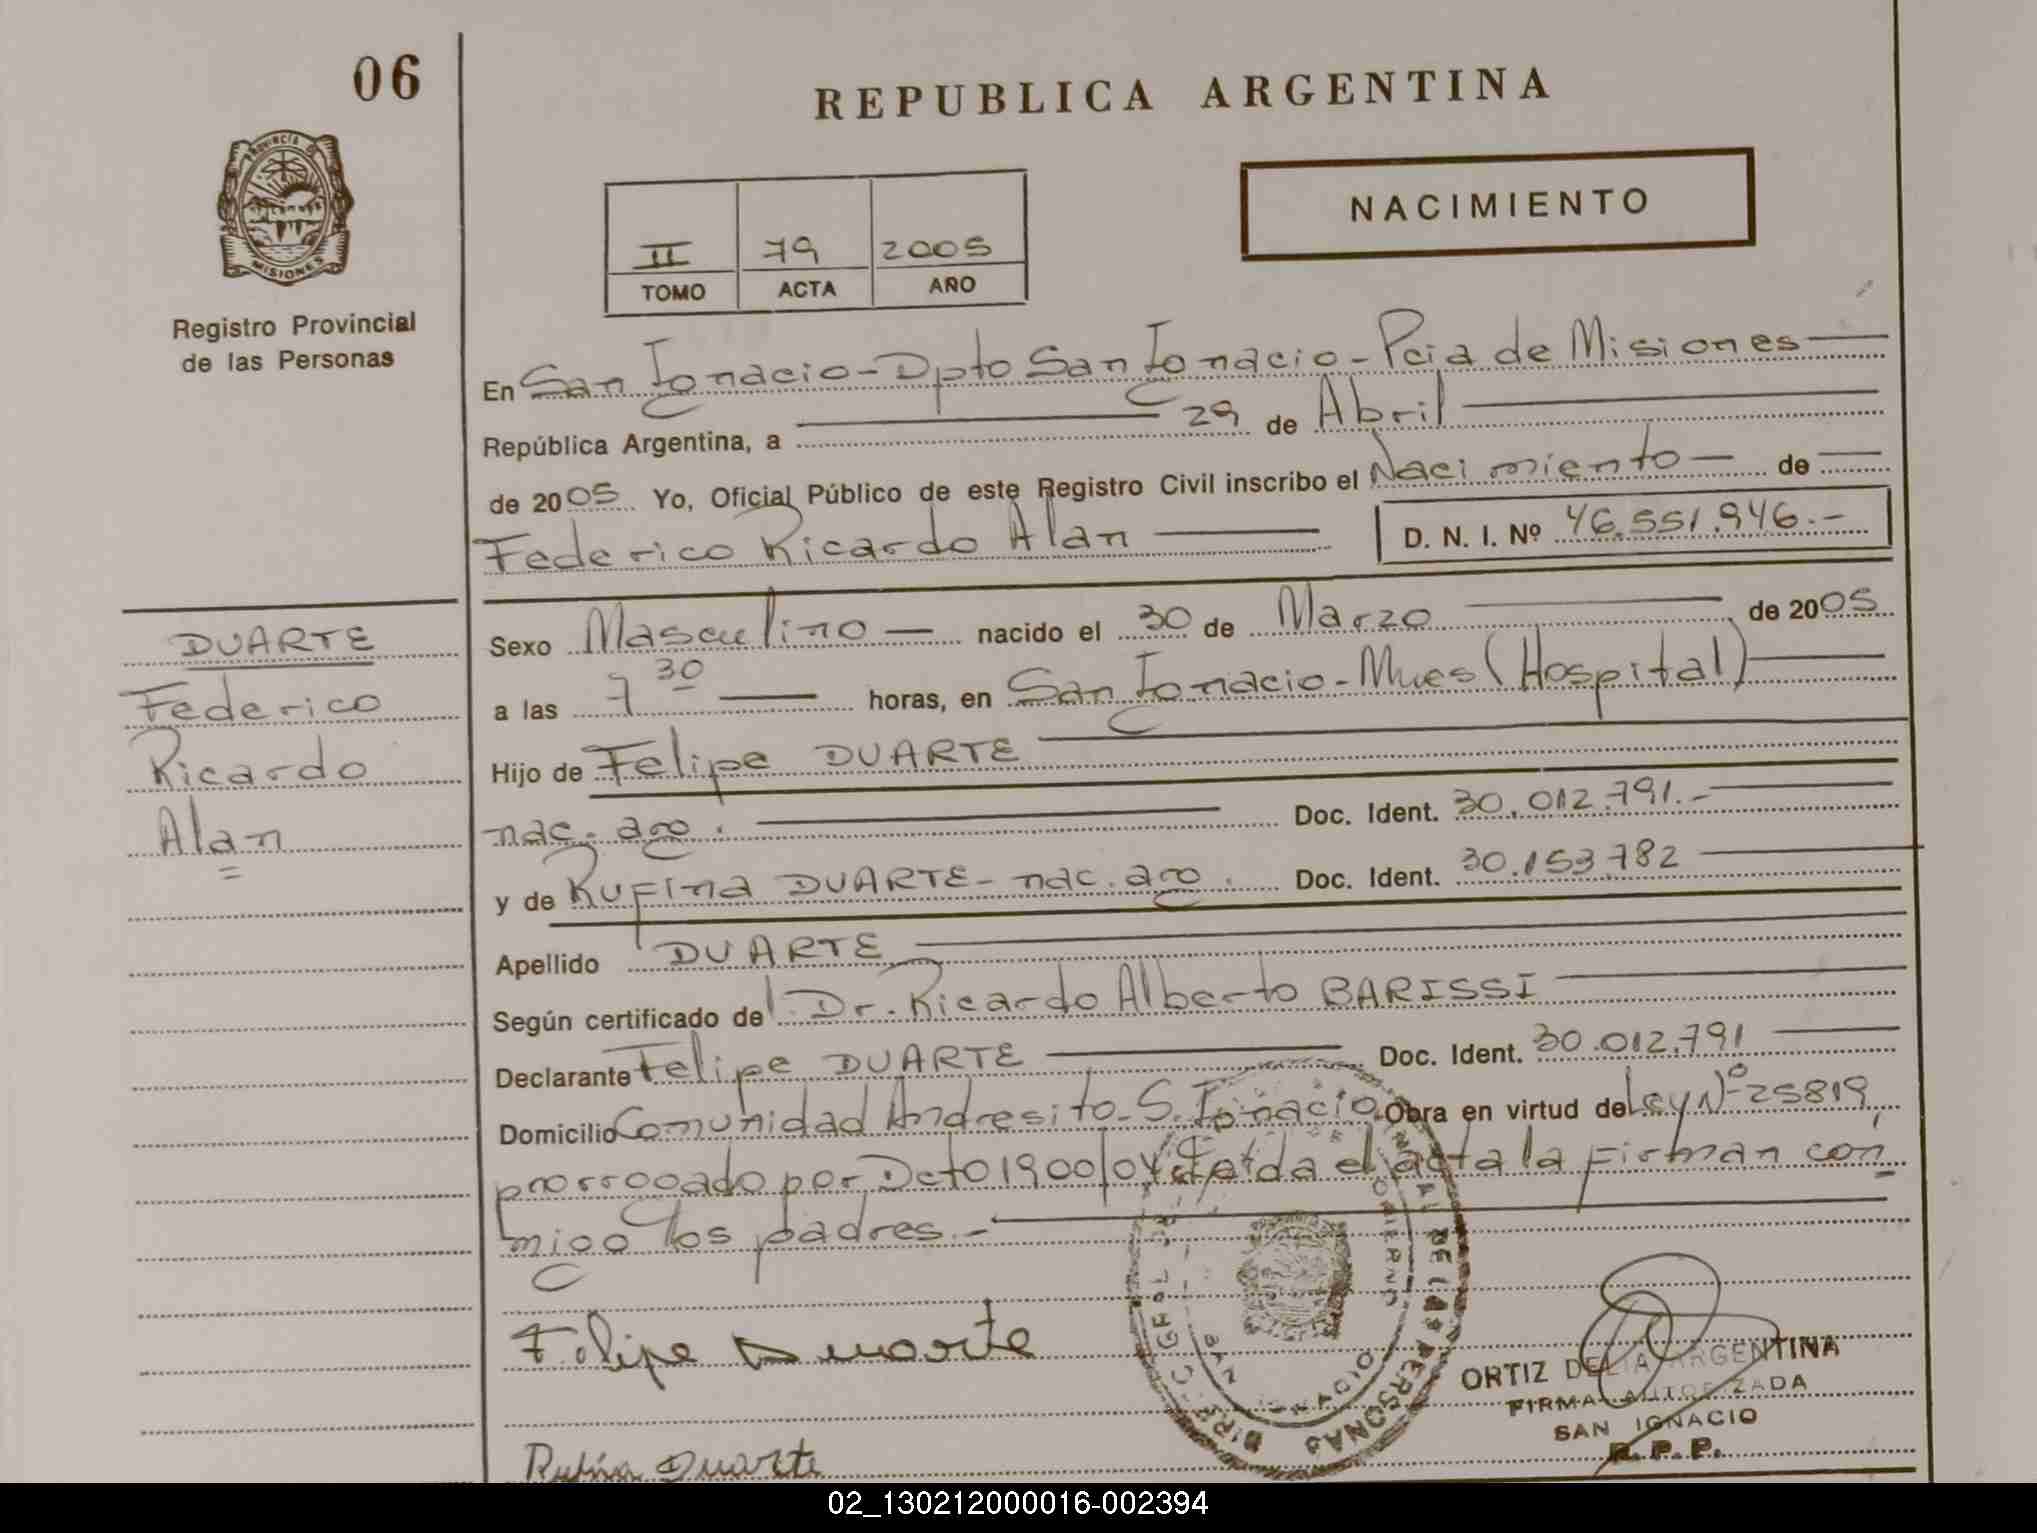 06
REPUBLICA ARGENTINA
PROVINCIA DE
MISIONES
NACIMIENTO
II 79 2005
TOMO ACTA AÑO
Registro Provincial
de las Personas
En San Ignacio - Dpto San Ignacio - Pcia de Misiones
República Argentina, a 29 de Abril
de 2005 Yo, Oficial Público de este Registro Civil inscribo el Nacimiento - de
Federico Ricardo Alan D. N. I. Nº 46.551.946.-
DUARTE
Federico
Ricardo
Alan
Sexo Masculino - nacido el 30 de Marzo de 2005
a las 7 30 horas, en San Ignacio - Mnes (Hospital)
Hijo de Felipe DUARTE
nac. arg. Doc. Ident. 30.012.791.-
y de Rufina DUARTE - nac. arg. Doc. Ident. 30.153.782
Apellido DUARTE
Según certificado del Dr. Ricardo Alberto BARISSI
Declarante Felipe DUARTE Doc. Ident. 30.012.791
Domicilio Comunidad Andresito - S. Ignacio Obra en virtud de Ley Nº 25819,
prorrogado por Dcto 1900/04 Leída el acta la firman con
migo los padres.-
Felipe Duarte
Rufina Duarte
ORTIZ DELIA ARGENTINA
FIRMA AUTORIZADA
SAN IGNACIO
R.P.P.
02_130212000016-002394